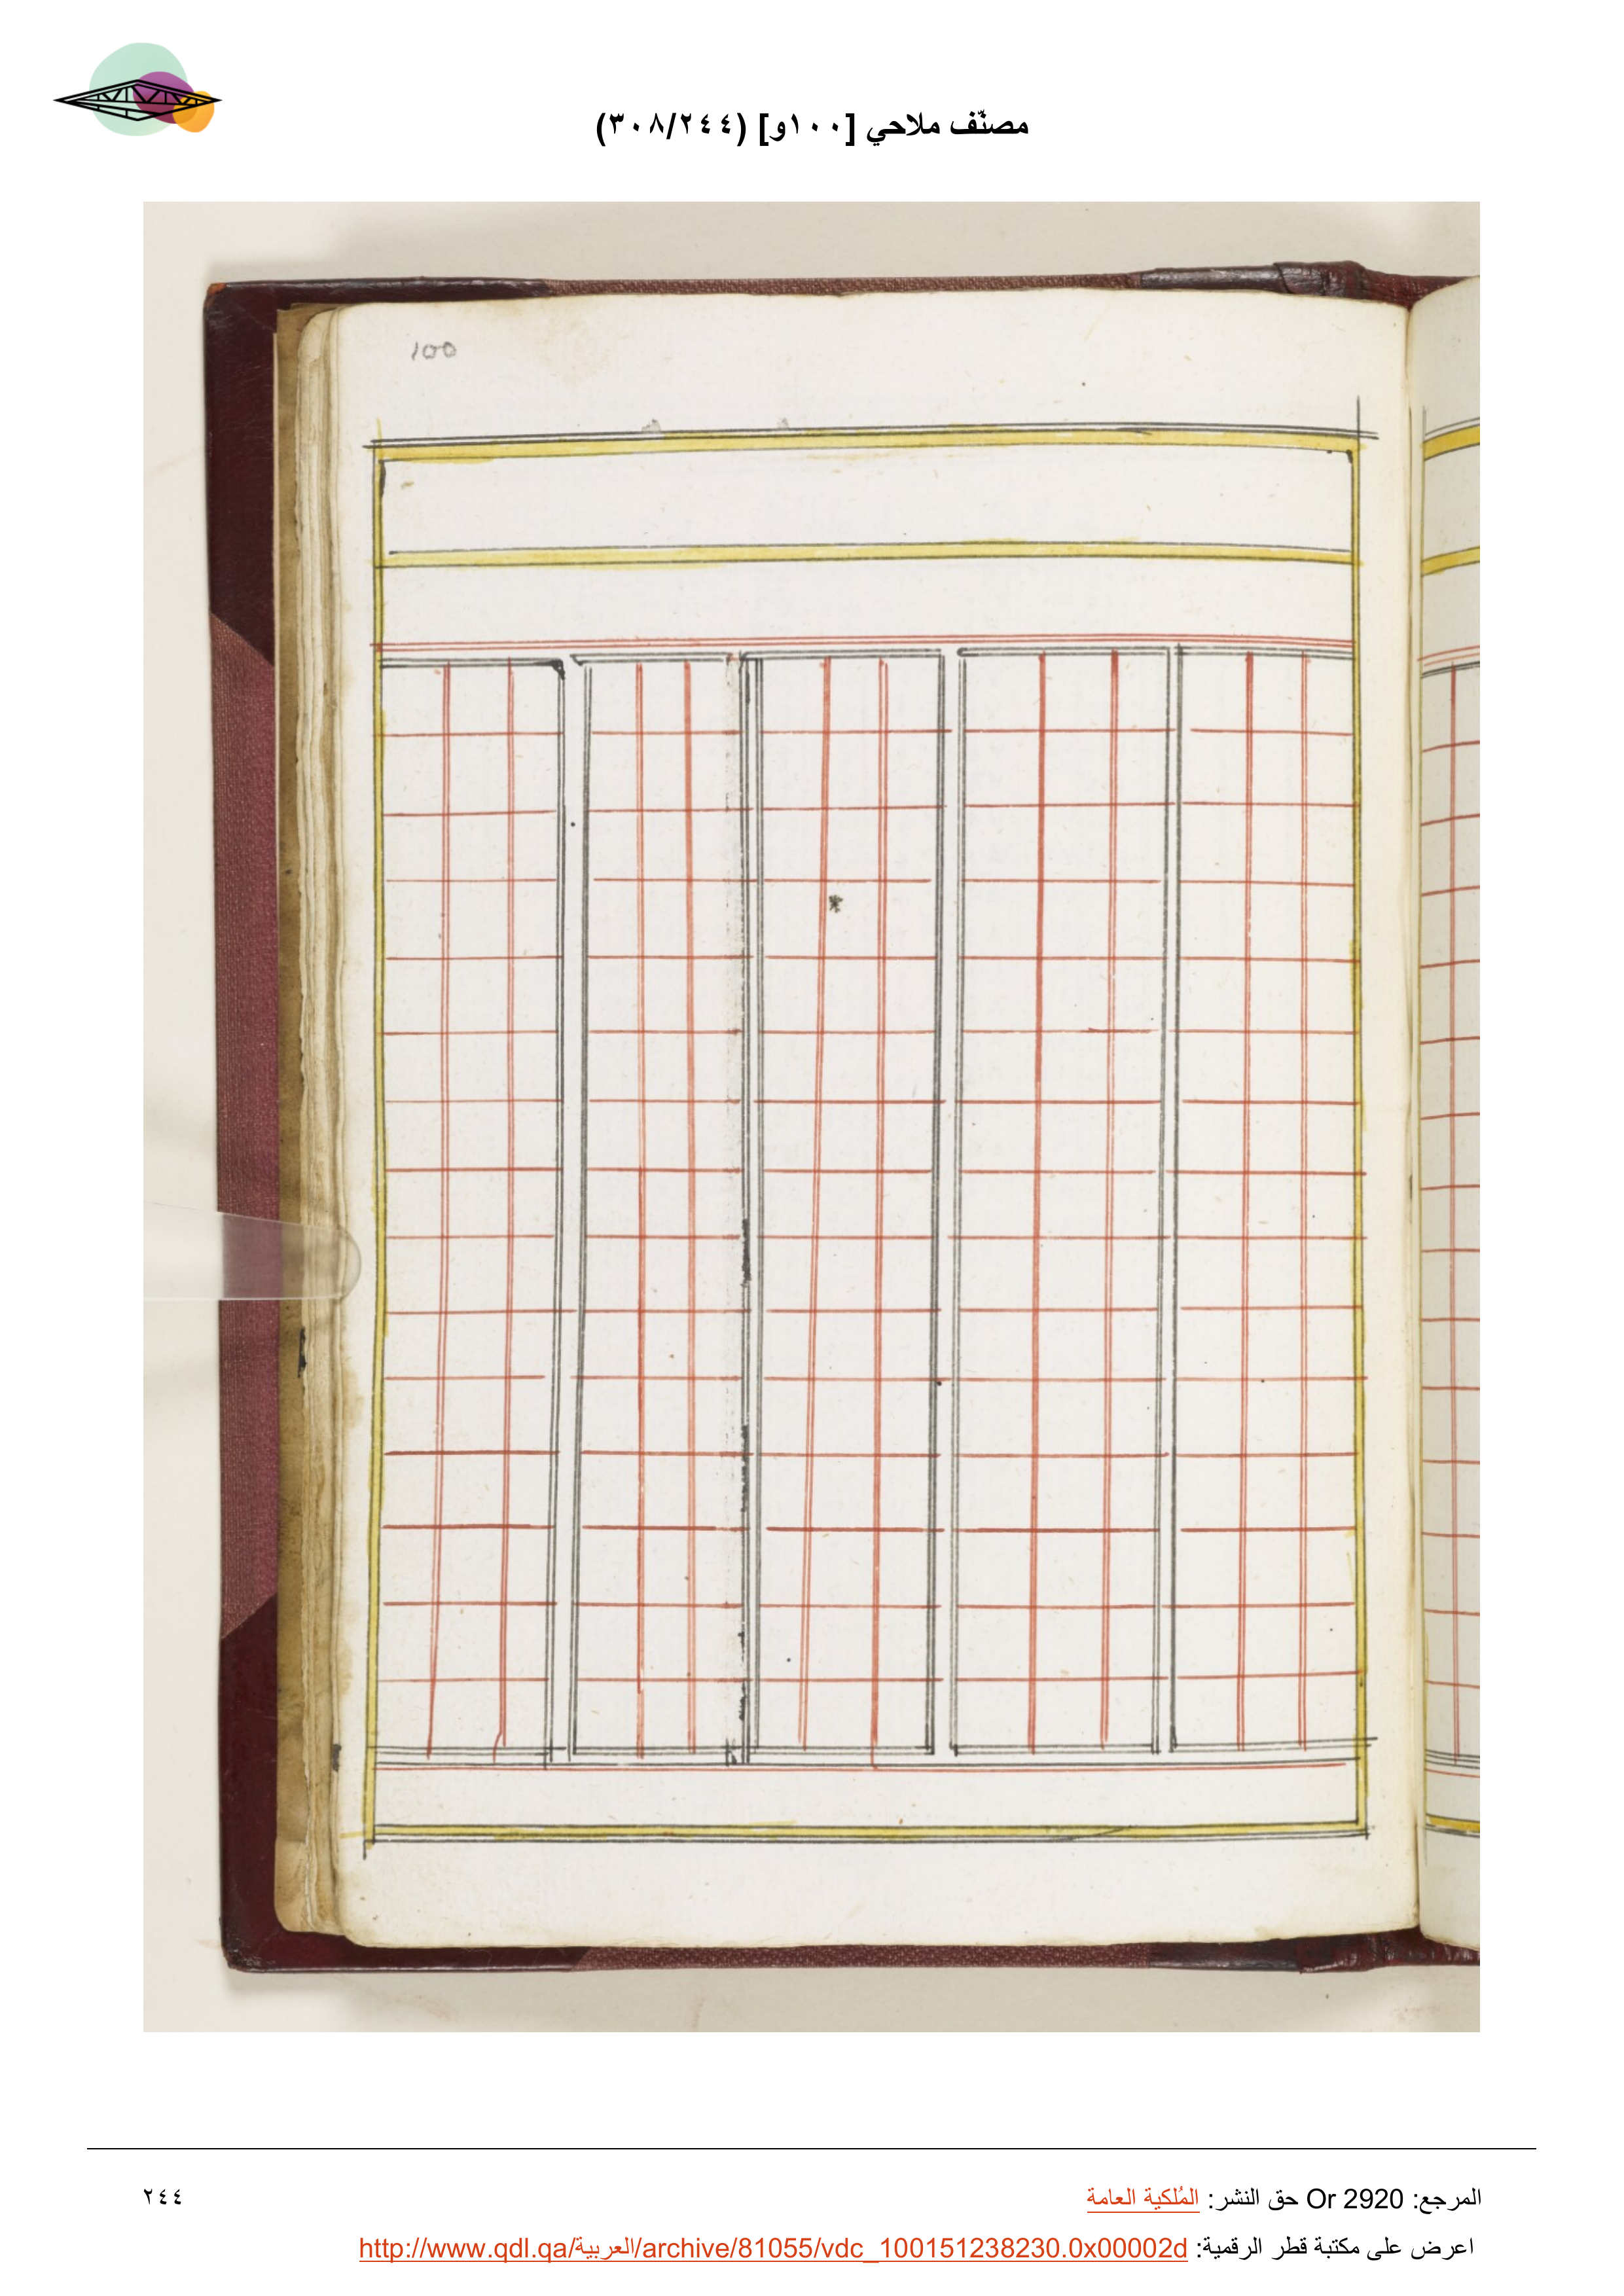 مصنّف ملاحي [١٠٠و] (٣٠٨/٢٤٤)
100
المرجع: Or 2920 حق النشر: المُلكية العامة
٢٤٤
اعرض على مكتبة قطر الرقمية: http://www.qdl.qa/العربية/archive/81055/vdc_100151238230.0x00002d